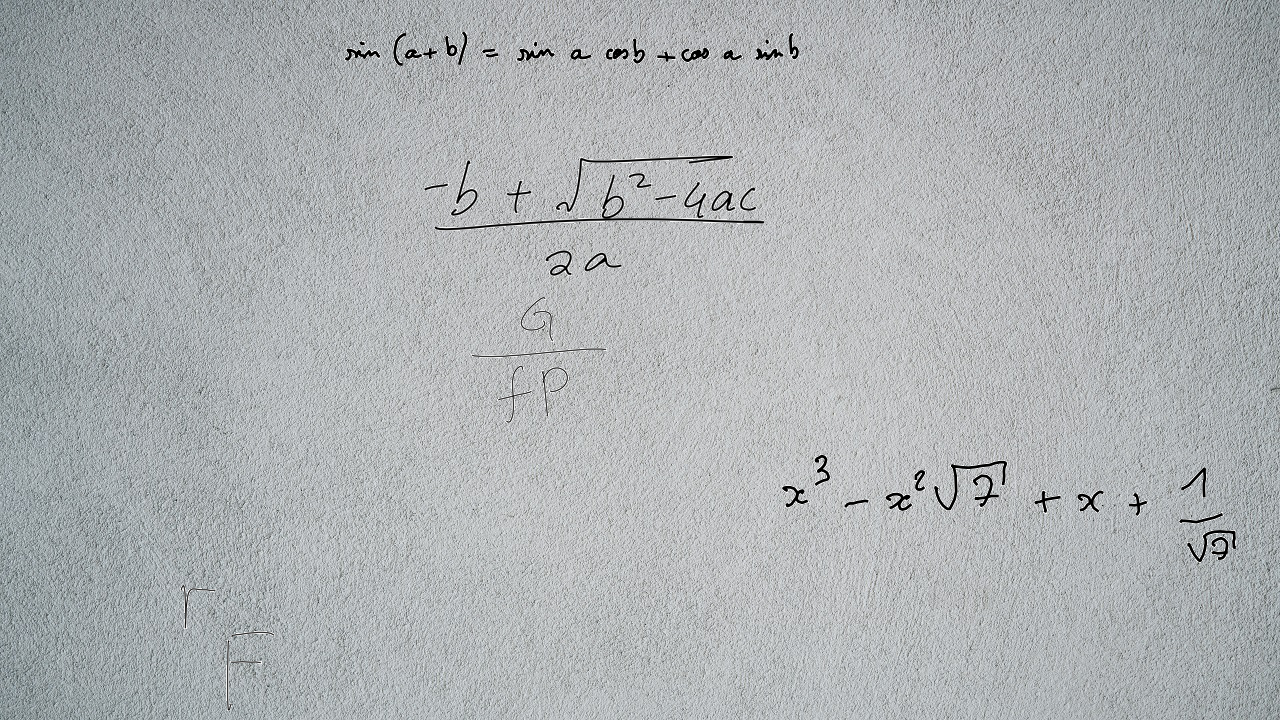 sin (a+b) = sin a cos b + cos a sin b
\frac{-b + \sqrt{b^2-4ac}}{2a}
\frac{G}{fP}
x^3 - x^2\sqrt{7} + x + \frac{1}{\sqrt{7}}
Γ_F